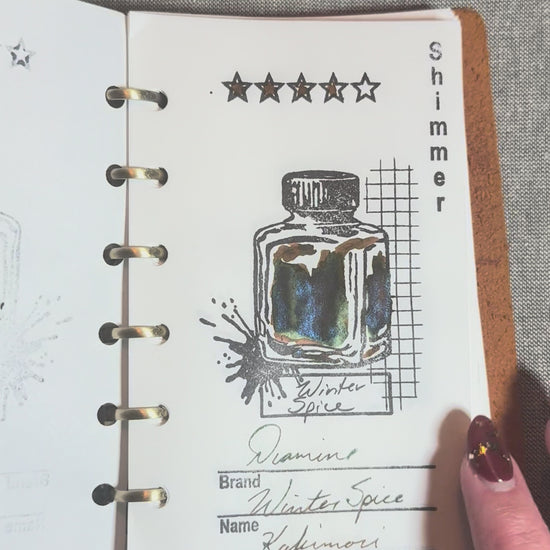 Shimmer
Winter
Spice
Diamine
Brand
Winter Spice
Name
Kakimori